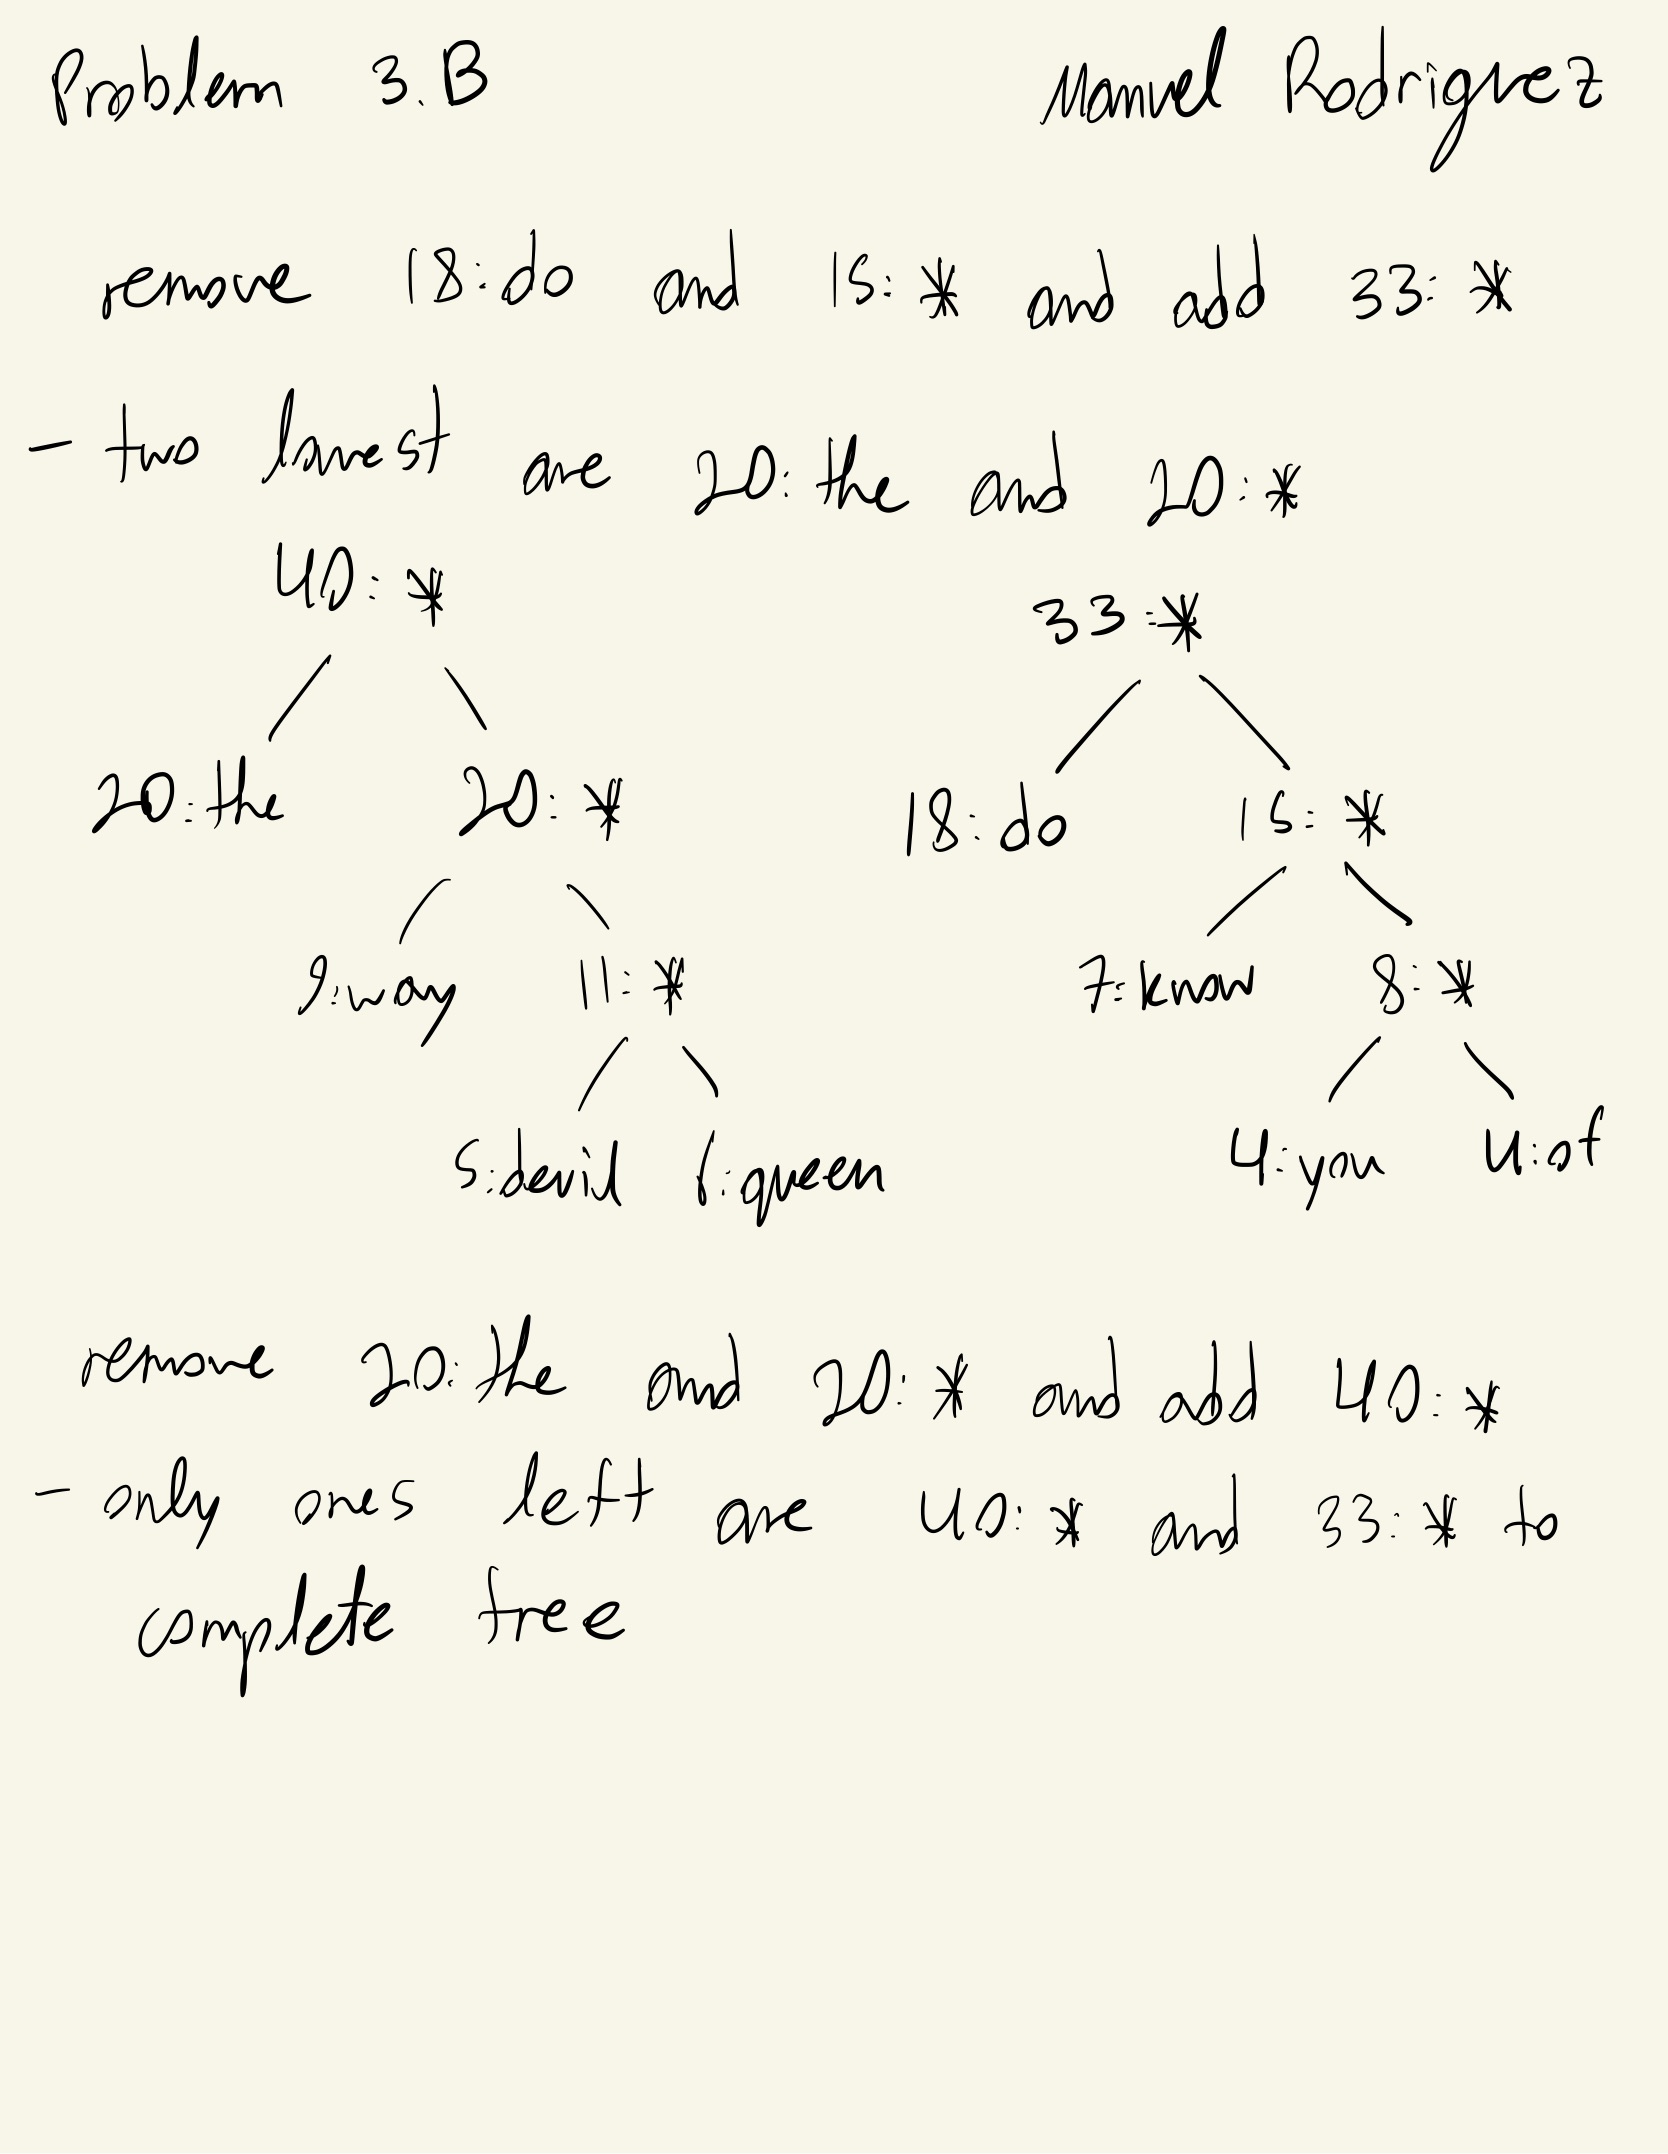 Problem 3.B Manuel Rodriguez
remove 18:do and 15:* and add 33:*
- two lowest are 20:the and 20:*
40:* 33:*
20:the 20:* 18:do 15:*
9:way 11:* 7:know 8:*
5:devil 6:queen 4:you 4:of
remove 20:the and 20:* and add 40:*
- only ones left are 40:* and 33:* to
complete tree